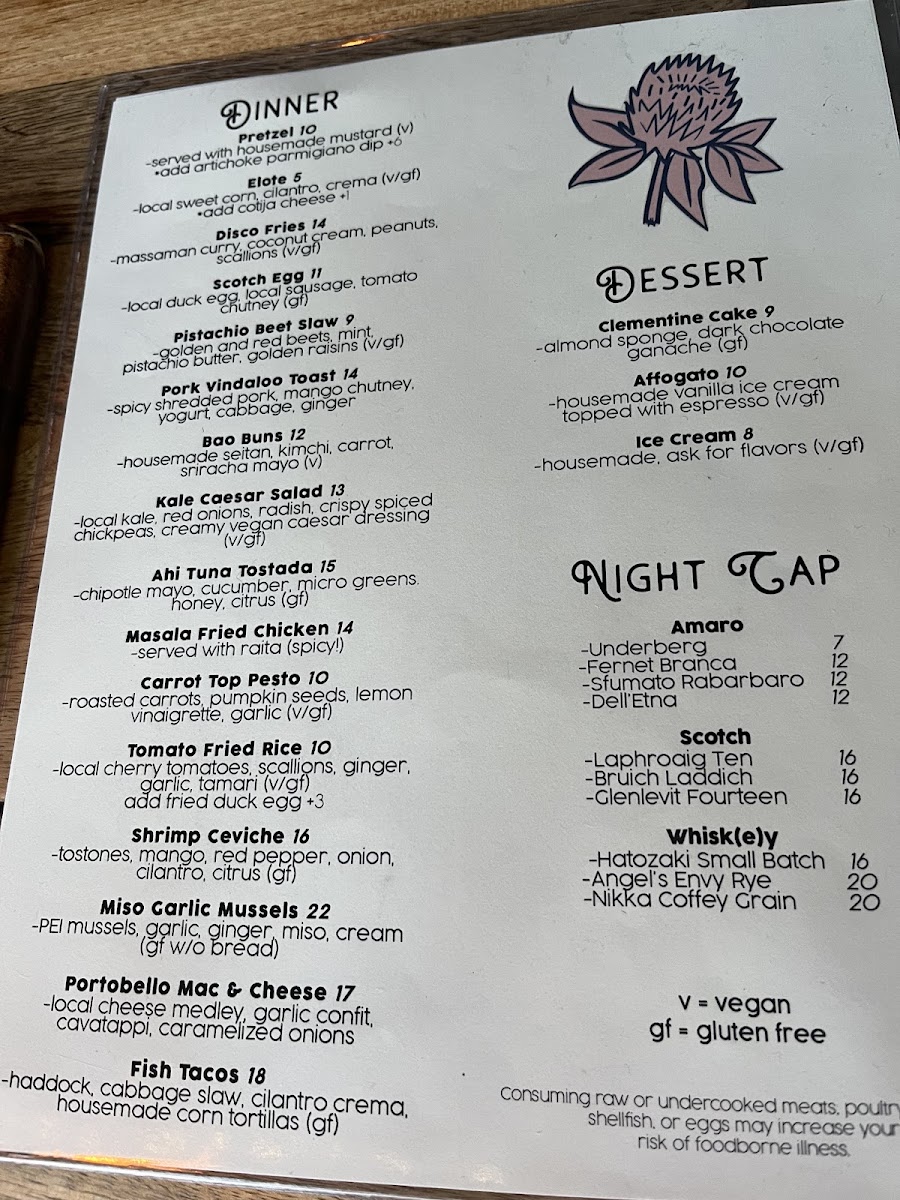 DINNER
Pretzel 10
-served with housemade mustard (v)
•add artichoke parmigiano dip +6
Elote 5
-local sweet corn, cilantro, crema (v/gf)
•add cotija cheese +1
Disco Fries 14
-massaman curry, coconut cream, peanuts,
scallions (v/gf)
Scotch Egg 11
-local duck egg, local sausage, tomato
chutney (gf)
Pistachio Beet Slaw 9
-golden and red beets, mint,
pistachio butter, golden raisins (v/gf)
Pork Vindaloo Toast 14
-spicy shredded pork, mango chutney,
yogurt, cabbage, ginger
Bao Buns 12
-housemade seitan, kimchi, carrot,
sriracha mayo (v)
Kale Caesar Salad 13
-local kale, red onions, radish, crispy spiced
chickpeas, creamy vegan caesar dressing
(v/gf)
Ahi Tuna Tostada 15
-chipotle mayo, cucumber, micro greens.
honey, citrus (gf)
Masala Fried Chicken 14
-served with raita (spicy!)
Carrot Top Pesto 10
-roasted carrots, pumpkin seeds, lemon
vinaigrette, garlic (v/gf)
Tomato Fried Rice 10
-local cherry tomatoes, scallions, ginger,
garlic, tamari (v/gf)
add fried duck egg +3
Shrimp Ceviche 16
-tostones, mango, red pepper, onion,
cilantro, citrus (gf)
Miso Garlic Mussels 22
-PEI mussels, garlic, ginger, miso, cream
(gf w/o bread)
Portobello Mac & Cheese 17
-local cheese medley, garlic confit,
cavatappi, caramelized onions
Fish Tacos 18
-haddock, cabbage slaw, cilantro crema,
housemade corn tortillas (gf)
DESSERT
Clementine Cake 9
-almond sponge, dark chocolate
ganache (gf)
Affogato 10
-housemade vanilla ice cream
topped with espresso (v/gf)
Ice Cream 8
-housemade, ask for flavors (v/gf)
NIGHT CAP
Amaro
-Underberg 7
-Fernet Branca 12
-Sfumato Rabarbaro 12
-Dell'Etna 12
Scotch
-Laphroaig Ten 16
-Bruich Laddich 16
-Glenlevit Fourteen 16
Whisk(e)y
-Hatozaki Small Batch 16
-Angel's Envy Rye 20
-Nikka Coffey Grain 20
v = vegan
gf = gluten free
Consuming raw or undercooked meats, poultry
shellfish, or eggs may increase your
risk of foodborne illness.